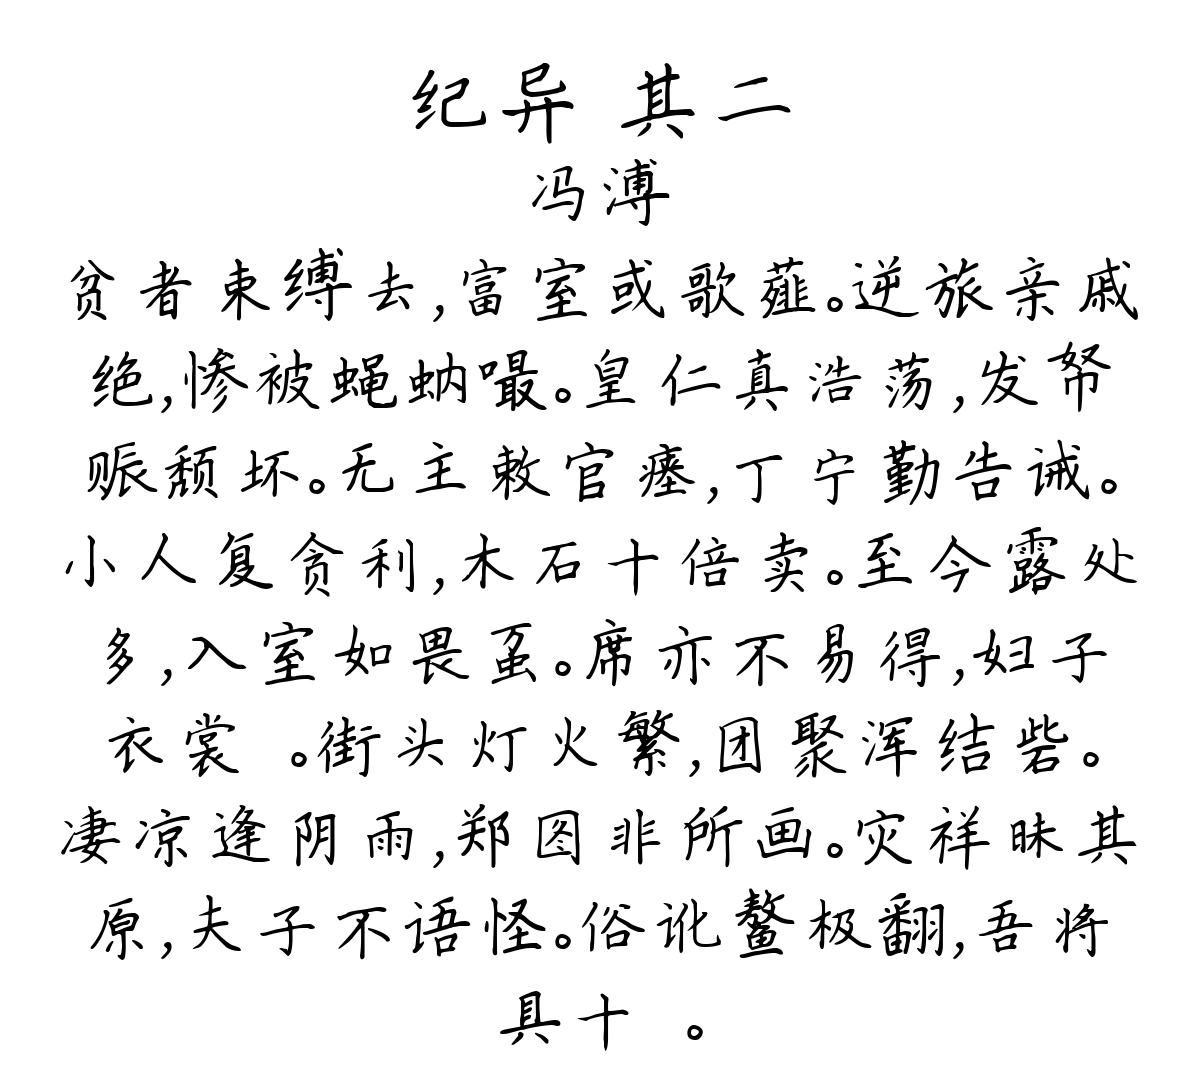 纪异 其二
冯溥
贫者束缚去,富室或歌薤。逆旅亲戚
绝,惨被蝇蚋嘬。皇仁真浩荡,发帑
赈颓坏。无主敕官瘗,丁宁勤告诫。
小人复贪利,木石十倍卖。至今露处
多,入室如畏虿。席亦不易得,妇子
衣裳 。街头灯火繁,团聚浑结砦。
凄凉逢阴雨,郑图非所画。灾祥昧其
原,夫子不语怪。俗讹鳌极翻,吾将
具十 。